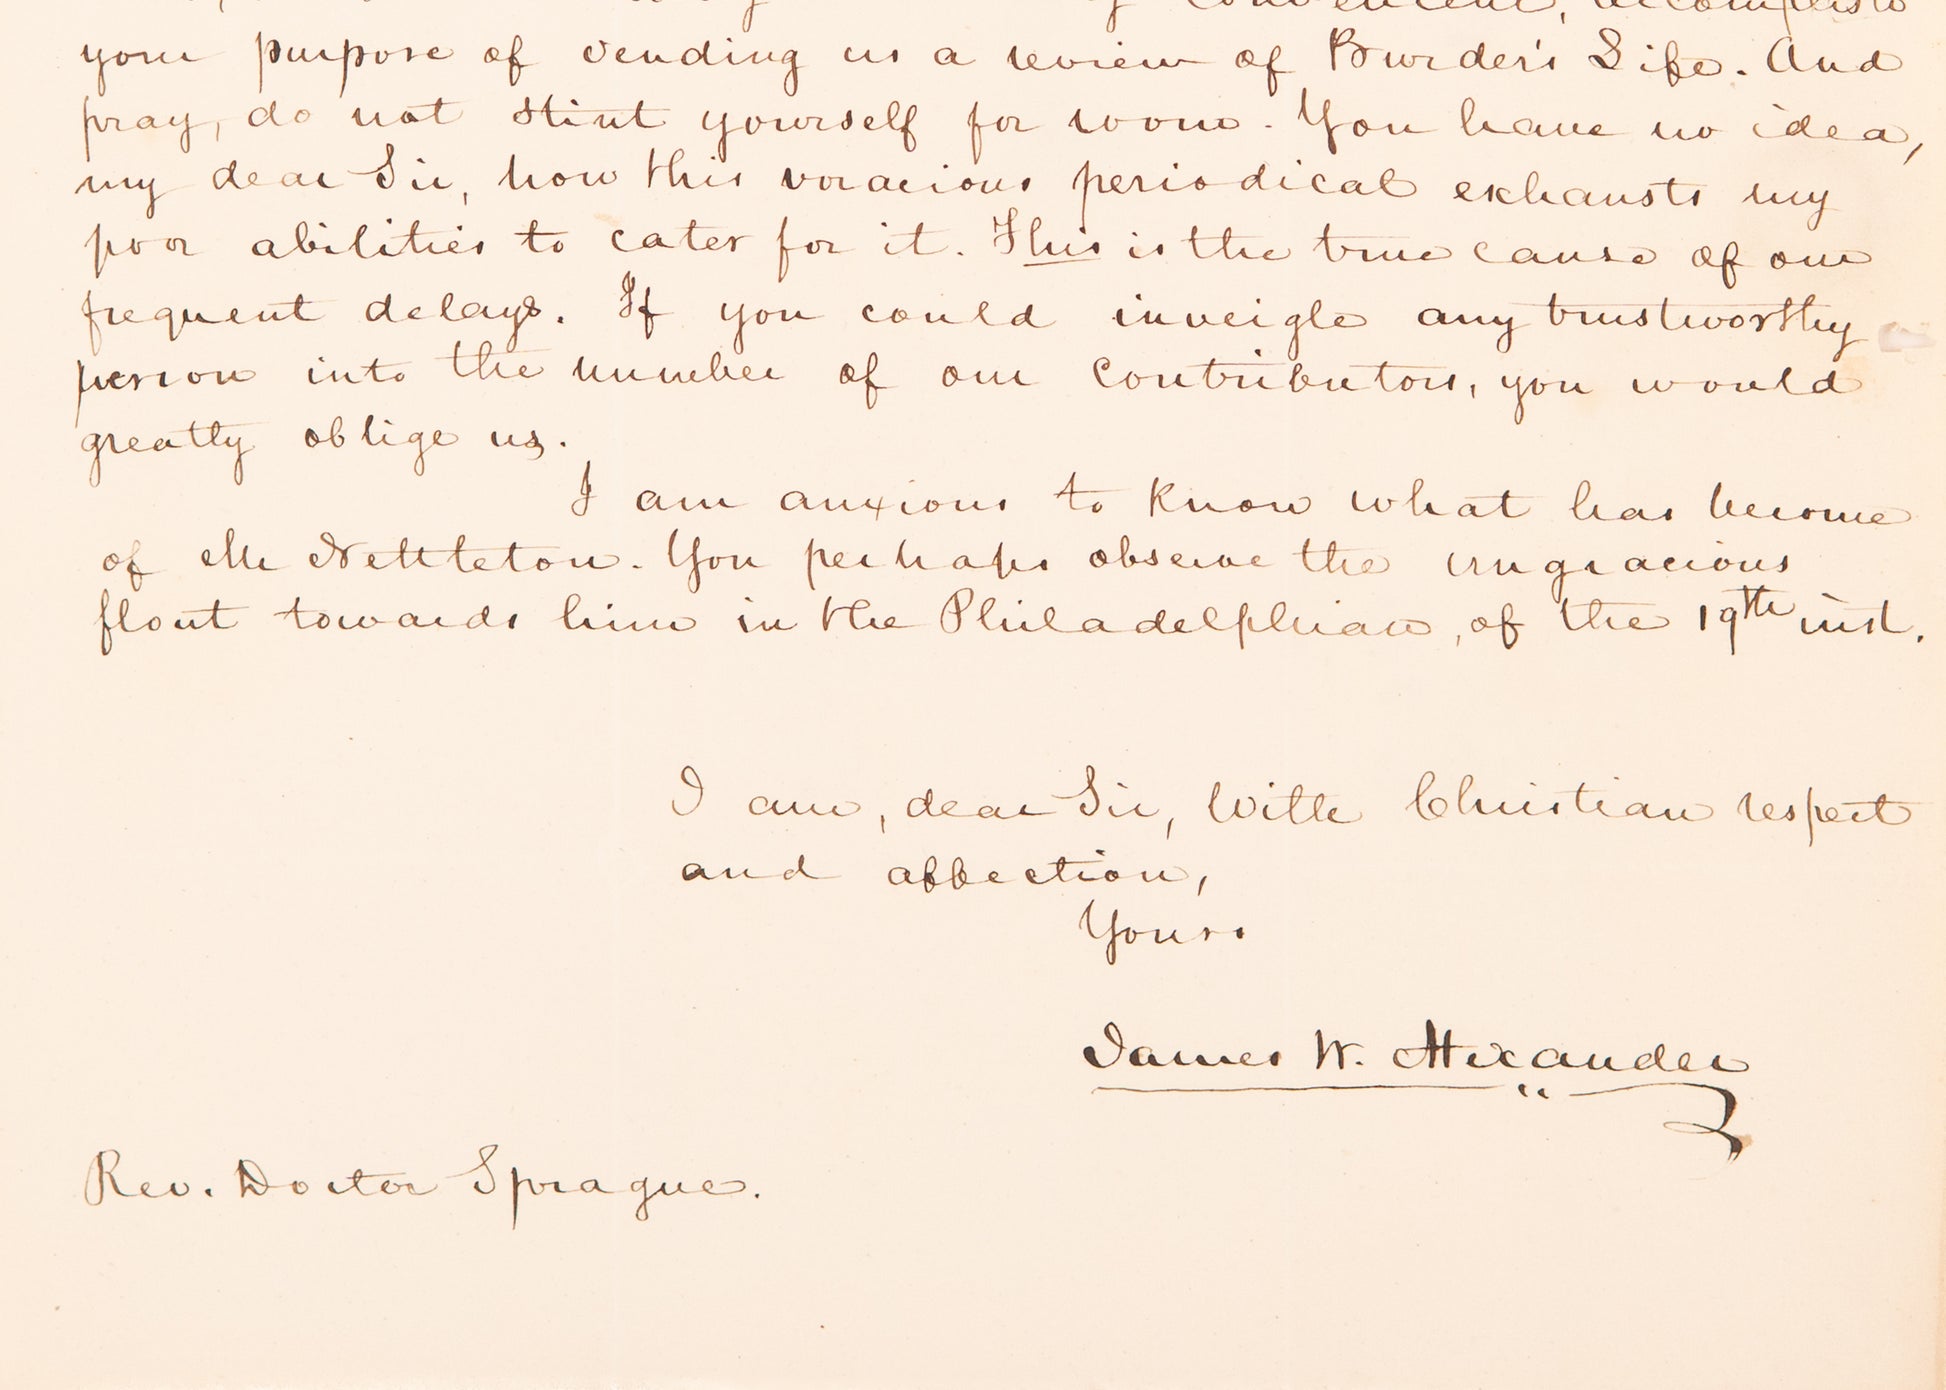 convenient, accomplish
your purpose of sending us a review of Burder's Life. And
pray, do not stint yourself for room. You have no idea,
my dear Sir, how this voracious periodical exhausts my
poor abilities to cater for it. This is the true cause of our
frequent delays. If you could inveigle any trustworthy
person into the number of our contributors, you would
greatly oblige us.
I am anxious to know what has become
of Mr Nettleton. You perhaps observe the ungracious
flout towards him in the Philadelphian, of the 19th inst.
I am, dear Sir, With Christian respect
and affection,
Yours
James W. Alexander
Rev. Doctor Sprague.